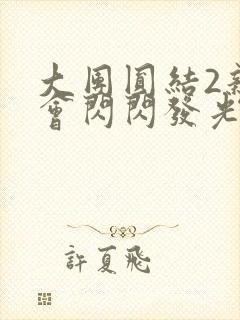 大團圓結2新
會閃閃發光
許夏飛